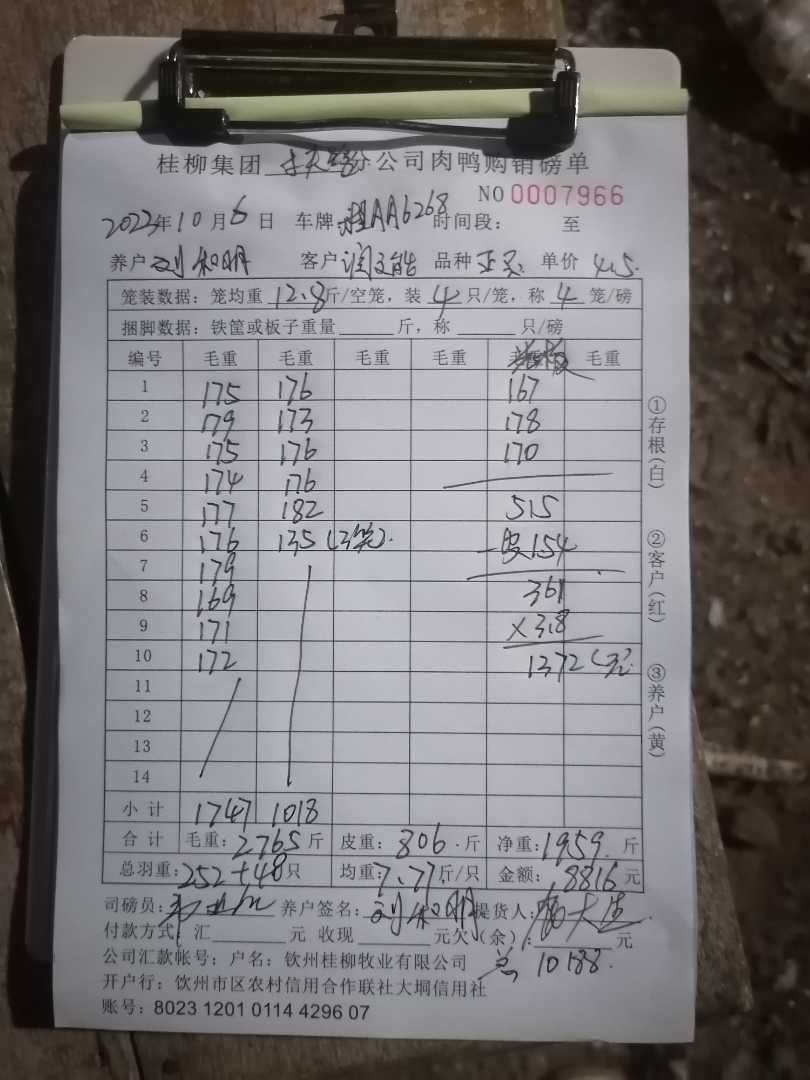 桂柳集团 分公司肉鸭购销磅单
NO 0007966
2022年10月6日 车牌: AA6268 时间段: 至
养户 刘和明 客户 润文能 品种 单价 4.5.
笼装数据: 笼均重 12.8 斤/空笼, 装 4 只/笼, 称 4 笼/磅
捆脚数据: 铁筐或板子重量 斤, 称 只/磅
编号 毛重 毛重 毛重 毛重 毛重
1 175 176 167
2 179 173 178
3 175 176 170
4 174 176
5 177 182 515
6 176 135 (3笼). -皮154
7 179
8 169 361
9 171 ×3.8
10 172 1372(元
11
12
13
14
小计 1747 1018
合计 毛重: 2765 斤 皮重: 806 斤 净重: 1959 斤
总羽重: 252+48 只 均重: 7.77 斤/只 金额: 8816 元
司磅员: 养户签名: 刘和明 提货人:
付款方式: 汇 元 收现 元欠(余): 元
公司汇款帐号: 户名: 钦州桂柳牧业有限公司 总 10188.
开户行: 钦州市区农村信用合作联社大垌信用社
账号: 8023 1201 0114 4296 07
①存根(白)
②客户(红)
③养户(黄)